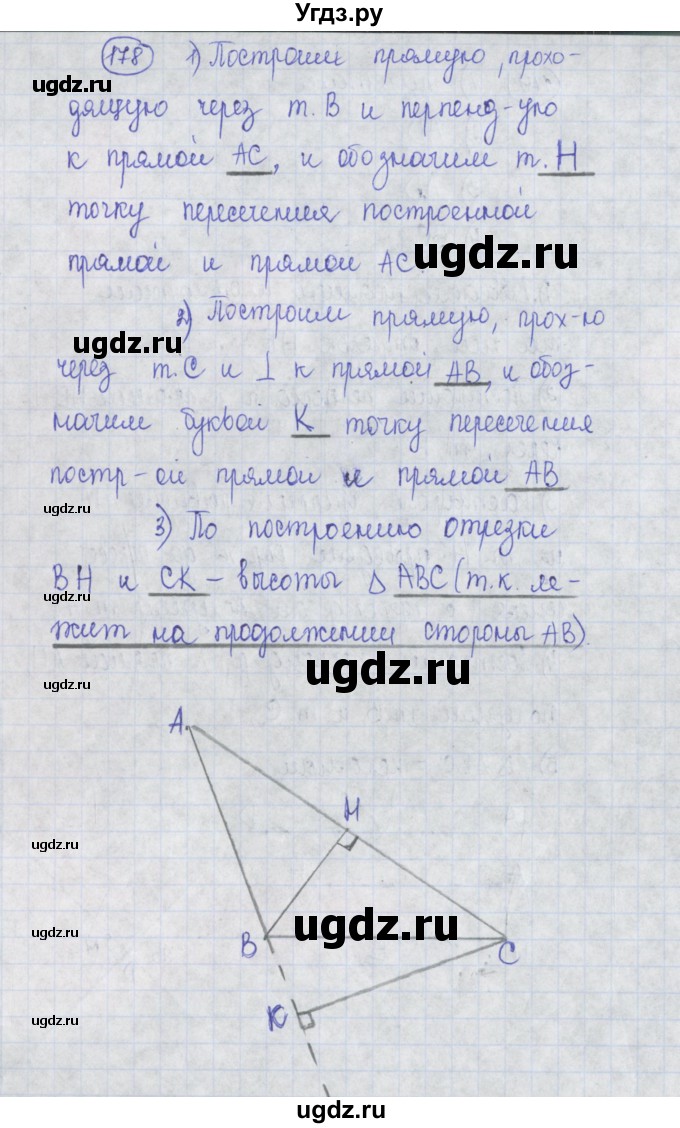 Угдз.ру
178 1) Построим прямую, прохо-
ugdz.ru
дящую через т. В и перпенд-ую
к прямой АС, и обозначим т. Н
точку пересечения построенной
ugdz.ru
прямой и прямой АС.
2) Построим прямую, прох-ю
ugdz.ru
через т. С и ⊥ к прямой АВ, и обоз-
начим буквой К точку пересечения
постр-ой прямой и прямой АВ
ugdz.ru
3) По построению отрезки
ВН и СК – высоты Δ АВС (т.к. ле-
ugdz.ru
жит на продолжении стороны АВ).
ugdz.ru
ugdz.ru
А
Н
ugdz.ru
ugdz.ru
ugdz.ru
В
С
К
ugdz.ru
ugdz.ru